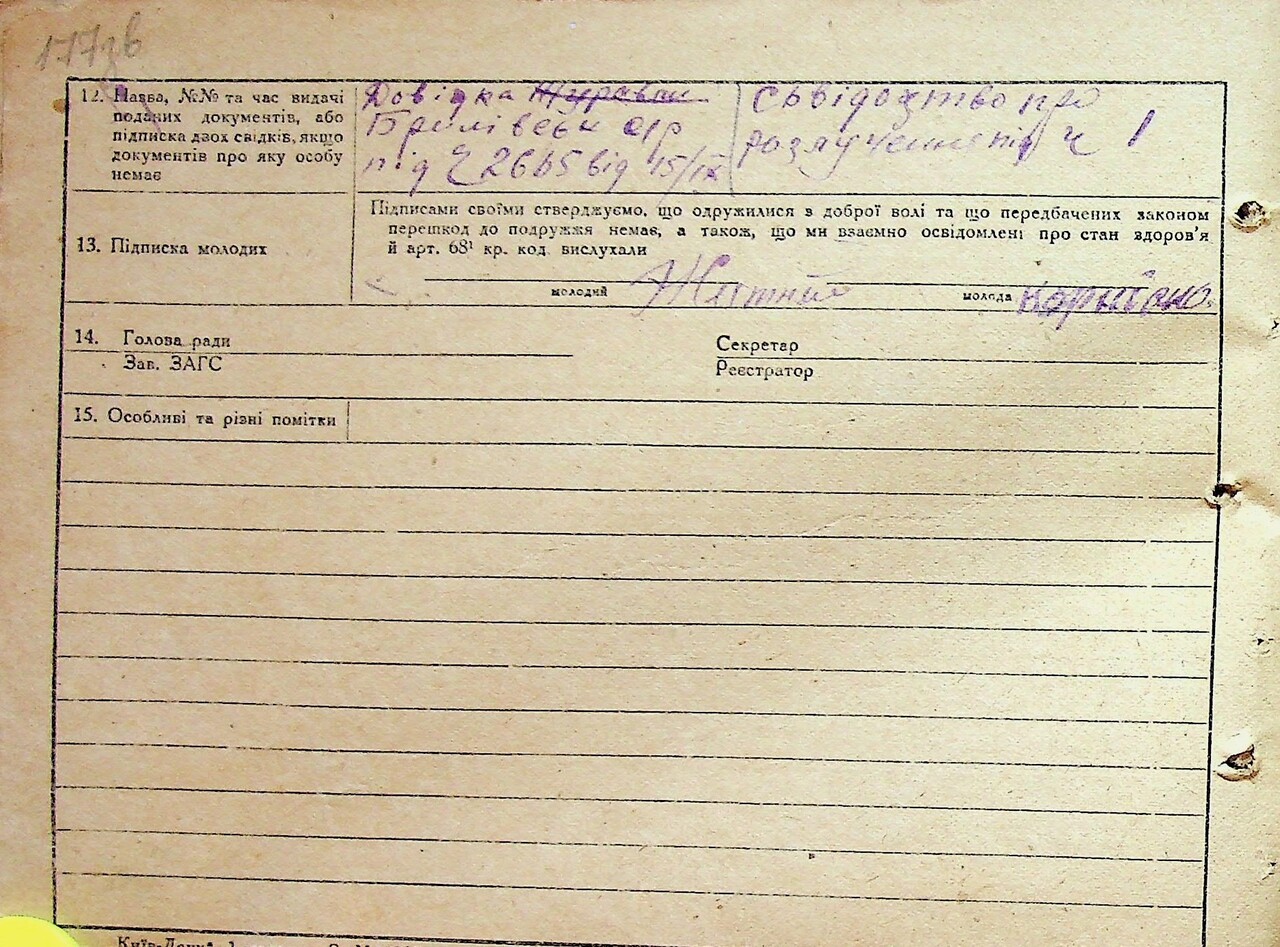 177зв
12. Назва, №№ та час видачі
поданих документів, або
підписка двох свідків, якщо
документів про яку особу
немає
Довідка Журавки
Брилівськ с/р
під Ч 2665 від 15/IX
Сьвідоцтво про
розлучення під Ч 1
13. Підписка молодих
Підписами своїми стверджуємо, що одружилися з доброї волі та що передбачених законом
перешкод до подружжя немає, а також, що ми взаємно освідомлені про стан здоров'я
й арт. 68¹ кр. код. вислухали
молодий Житний молода
14. Голова ради
Зав. ЗАГС
Секретар
Реєстратор
15. Особливі та різні помітки